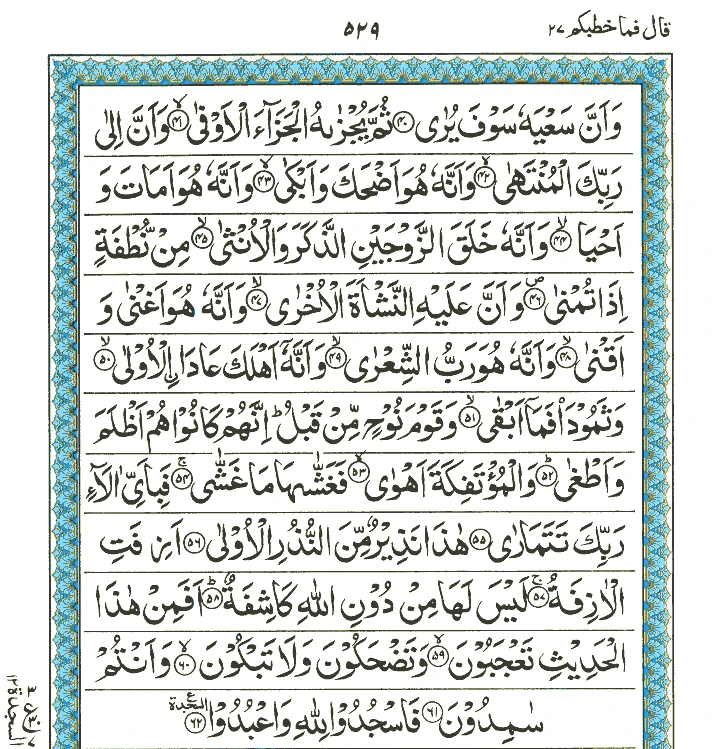 قال فما خطبکم ۲۷
۵۲۹
وَاَنَّ سَعْيَهٗ سَوْفَ يُرٰى ﴿۴۰﴾ ثُمَّ يُجْزٰىهُ الْجَزَآءَ الْاَوْفٰى ۙ﴿۴۱﴾ وَاَنَّ اِلٰى
رَبِّكَ الْمُنْتَهٰى ۙ﴿۴۲﴾ وَاَنَّهٗ هُوَ اَضْحَكَ وَاَبْكٰى ۙ﴿۴۳﴾ وَاَنَّهٗ هُوَ اَمَاتَ وَ
اَحْيَا ۙ﴿۴۴﴾ وَاَنَّهٗ خَلَقَ الزَّوْجَيْنِ الذَّكَرَ وَالْاُنْثٰى ۙ﴿۴۵﴾ مِنْ نُّطْفَةٍ
اِذَا تُمْنٰى ۪﴿۴۶﴾ وَاَنَّ عَلَيْهِ النَّشْاَةَ الْاُخْرٰى ۙ﴿۴۷﴾ وَاَنَّهٗ هُوَ اَغْنٰى وَ
اَقْنٰى ۙ﴿۴۸﴾ وَاَنَّهٗ هُوَ رَبُّ الشِّعْرٰى ۙ﴿۴۹﴾ وَاَنَّهٗۤ اَهْلَكَ عَادَا ۨالْاُوْلٰى ۙ﴿۵۰﴾
وَثَمُوْدَا۟ فَمَاۤ اَبْقٰى ۙ﴿۵۱﴾ وَقَوْمَ نُوْحٍ مِّنْ قَبْلُ ؕ اِنَّهُمْ كَانُوْا هُمْ اَظْلَمَ
وَاَطْغٰى ؕ﴿۵۲﴾ وَالْمُؤْتَفِكَةَ اَهْوٰى ۙ﴿۵۳﴾ فَغَشّٰىهَا مَا غَشّٰى ۚ﴿۵۴﴾ فَبِاَىِّ اٰلَآءِ
رَبِّكَ تَتَمَارٰى ﴿۵۵﴾ هٰذَا نَذِيْرٌ مِّنَ النُّذُرِ الْاُوْلٰى ﴿۵۶﴾ اَزِفَتِ
الْاٰزِفَةُ ۚ﴿۵۷﴾ لَيْسَ لَهَا مِنْ دُوْنِ اللّٰهِ كَاشِفَةٌ ؕ﴿۵۸﴾ اَفَمِنْ هٰذَا
الْحَدِيْثِ تَعْجَبُوْنَ ۙ﴿۵۹﴾ وَتَضْحَكُوْنَ وَلَا تَبْكُوْنَ ۙ﴿۶۰﴾ وَاَنْتُمْ
سٰمِدُوْنَ ﴿۶۱﴾ فَاسْجُدُوْا لِلّٰهِ وَاعْبُدُوْا ﴿۶۲﴾ السجدة ع
السجدة ۱۲